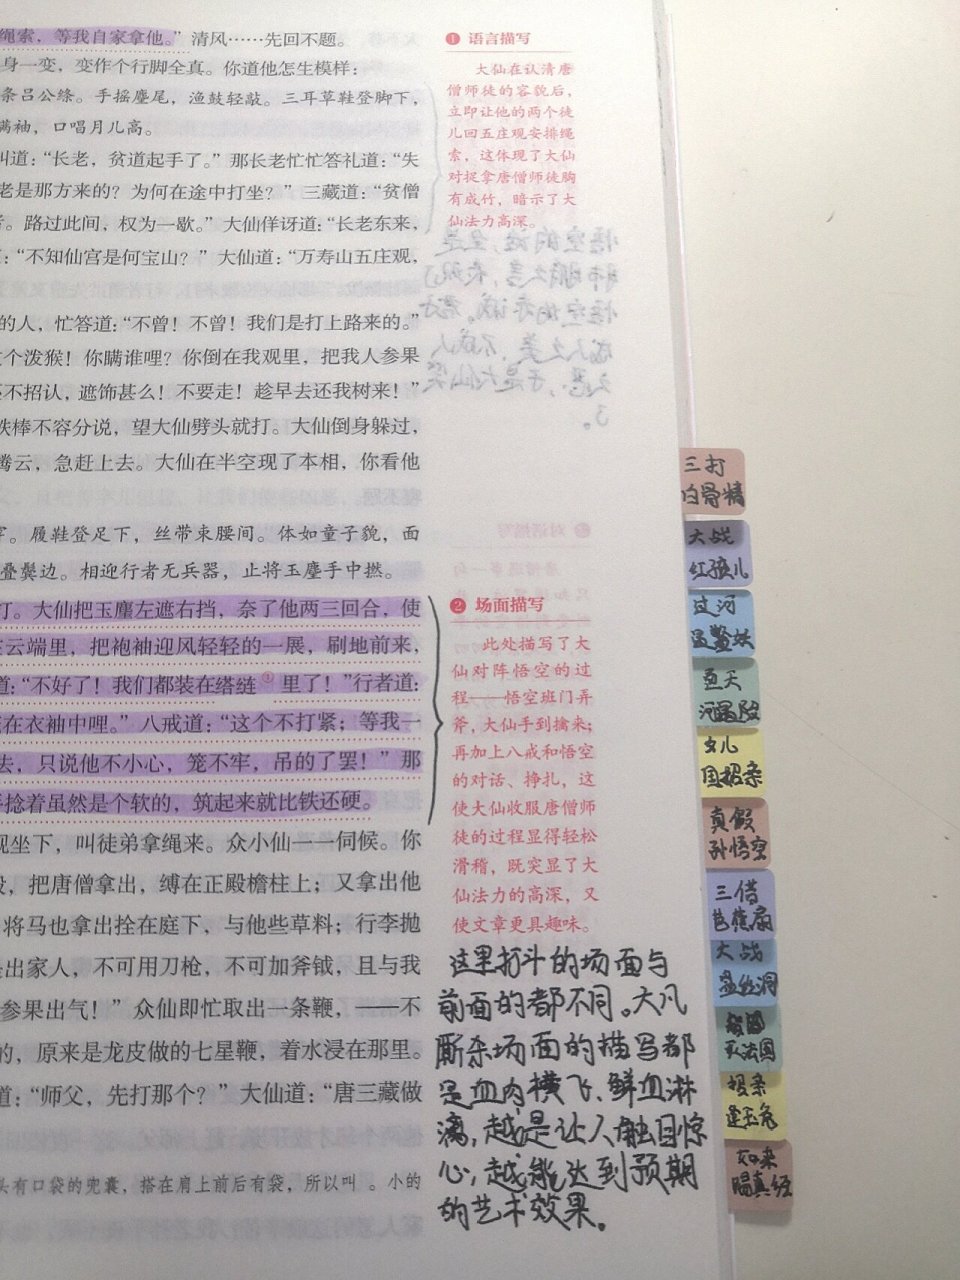 绳索，等我自家拿他。”清风……先回不题。
身一变，变作个行脚全真。你道他怎生模样：
条吕公绦。手摇麈尾，渔鼓轻敲。三耳草鞋登脚下，
满袖，口唱月儿高。
叫道：“长老，贫道起手了。”那长老忙忙答礼道：“失
老是那方来的？为何在途中打坐？”三藏道：“贫僧
路过此间，权为一歇。”大仙佯讶道：“长老东来，
：“不知仙宫是何宝山？”大仙道：“万寿山五庄观，
的人，忙答道：“不曾！不曾！我们是打上路来的。”
个泼猴！你瞒谁哩？你倒在我观里，把我人参果
不招认，遮饰甚么！不要走！趁早去还我树来！”
铁棒不容分说，望大仙劈头就打。大仙侧身躲过，
腾云，急赶上去。大仙在半空现了本相，你看他
履鞋登足下，丝带束腰间。体如童子貌，面
叠鬓边。相迎行者无兵器，止将玉麈手中撚。
打。大仙把玉麈左遮右挡，奈了他两三回合，使
在云端里，把袍袖迎风轻轻的一展，刷地前来，
道：“不好了！我们都装在褡裢①里了！”行者道：
在衣袖中哩。”八戒道：“这个不打紧；等我一
去，只说他不小心，笼不牢，吊的了罢！”那
捻着虽然是个软的，筑起来就比铁还硬。
观坐下，叫徒弟拿绳来。众小仙一一伺候。你
，把唐僧拿出，缚在正殿檐柱上；又拿出他
将马也拿出拴在庭下，与他些草料；行李抛
出家人，不可用刀枪，不可加斧钺，且与我
参果出气！”众仙即忙取出一条鞭，——不
的，原来是龙皮做的七星鞭，着水浸在那里。
道：“师父，先打那个？”大仙道：“唐三藏做
头有口袋的兜囊，搭在肩上前后有袋，所以叫 。小的
❶ 语言描写
大仙在认清唐
僧师徒的容貌后，
立即让他的两个徒
儿回五庄观安排绳
索，这体现了大仙
对捉拿唐僧师徒胸
有成竹，暗示了大
仙法力高深。
❷ 场面描写
此处描写了大
仙对阵悟空的过
程——悟空班门弄
斧，大仙手到擒来；
再加上八戒和悟空
的对话、挣扎，这
使大仙收服唐僧师
徒的过程显得轻松
滑稽，既突显了大
仙法力的高深，又
使文章更具趣味。
这里打斗的场面与
前面的都不同。大凡
厮杀场面的描写都
是血肉横飞、鲜血淋
漓，越是让人触目惊
心，越能达到预期
的艺术效果。
三打
白骨精
大战
红孩儿
过河
通天
河遇险
女儿
国招亲
真假
孙悟空
三借
芭蕉扇
大战
盘丝洞
灭法国
招亲
逢玉兔
如来
赐真经